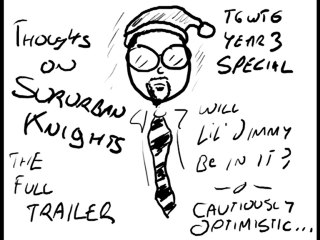 THOUGHTS
ON
SUBURBAN
KNIGHTS
THE
FULL
TRAILER
TGWTG
YEAR 3
SPECIAL
WILL
LIL' JIMMY
BE IN IT?
CAUTIOUSLY
OPTIMISTIC...